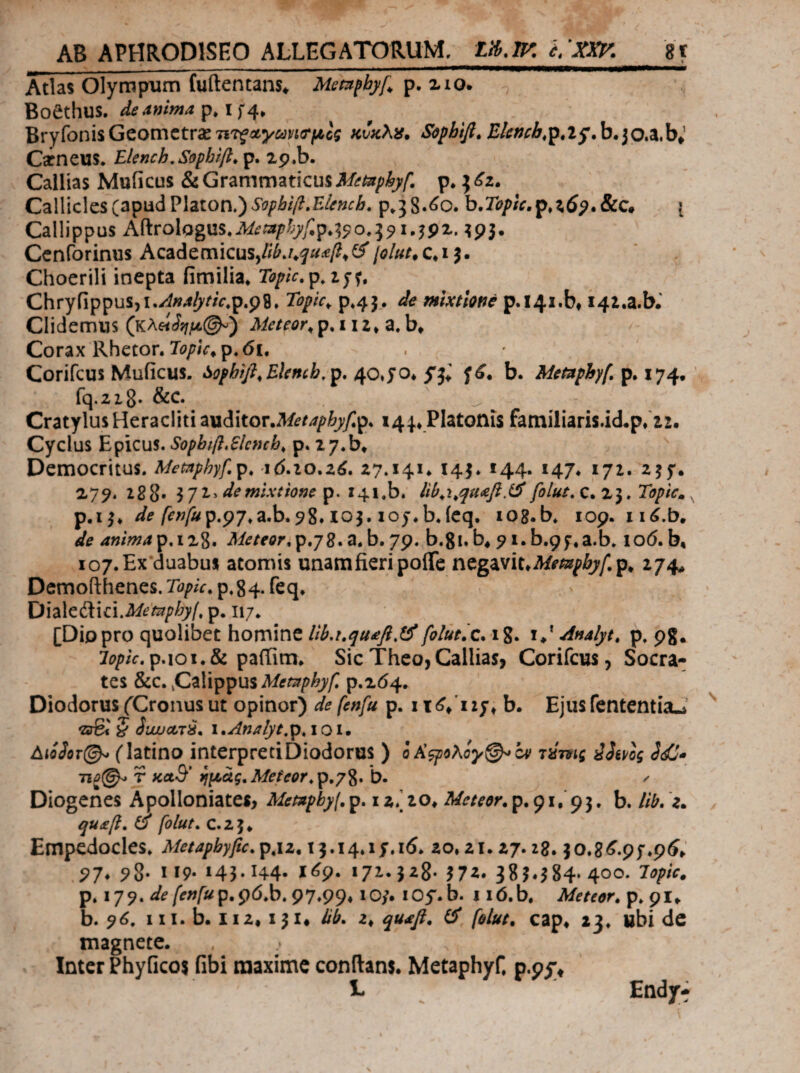 AB APHRODISEO ALLEGATORUM. Lib. IV. c. XXV. 81
Atlas Olympum ſuſtentans. Metaphyſ. p. 210.
Boëthus. de anima p. 154.
Bryſonis Geometræ τετραγωνισμὸς κύκλου. Sophiſt. Elench. p. 25. b. 30. a. b.
Cæneus. Elench. Sophiſt. p. 29. b.
Callias Muſicus & Grammaticus Metaphyſ. p. 362.
Callicles (apud Platon.) Sophiſt. Elench. p. 38. 60. b. Topic. p. 269. &c.
Callippus Aſtrologus. Metaphyſ. p. 390. 391. 392. 393.
Cenſorinus Academicus, lib. 1. quæſt. & ſolut. c. 13.
Choerili inepta ſimilia. Topic. p. 255.
Chryſippus, 1. Analytic. p. 98. Topic. p. 43. de mixtione p. 141. b. 142. a. b.
Clidemus (Κλείδημ@) Meteor. p. 112. a. b.
Corax Rhetor. Topic. p. 61.
Coriſcus Muſicus. Sophiſt. Elench. p. 40. 50. 53. 56. b. Metaphyſ. p. 174.
ſq. 228. &c.
Cratylus Heracliti auditor. Metaphyſ. p. 144. Platonis familiaris. id. p. 22.
Cyclus Epicus. Sophiſt. Elench. p. 27. b.
Democritus. Metaphyſ. p. 16. 20. 26. 27. 141. 143. 144. 147. 172. 235.
279. 288. 372. de mixtione p. 141. b. lib. 2. quæſt. & ſolut. c. 23. Topic.
p. 13. de ſenſu p. 97. a. b. 98. 103. 105. b. ſeq. 108. b. 109. 116. b.
de anima p. 128. Meteor. p. 78. a. b. 79. b. 81. b. 91. b. 95. a. b. 106. b.
107. Ex duabus atomis unam fieri poſſe negavit. Metaphyſ. p. 274.
Demoſthenes. Topic. p. 84. ſeq.
Dialectici. Metaphyſ. p. 117.
[Dio pro quolibet homine lib. 1. quæſt. & ſolut. c. 18. 1. Analyt. p. 98.
Topic. p. 101. & paſſim. Sic Theo, Callias, Coriſcus, Socra-
tes &c. Calippus Metaphyſ. p. 264.
Diodorus (Cronus ut opinor) de ſenſu p. 116. 125. b. Ejus ſententia
περὶ τ δυνατοῦ. 1. Analyt. p. 101.
Διόδοτ@ (latino interpreti Diodorus) ὁ Ἀστρολόγ@ ἐν τούτοις
τ καθ' ἡμᾶς. Meteor. p. 78. b.
Diogenes Apolloniates, Metaphyſ. p. 12. 20. Meteor. p. 91. 93. b. lib. 2.
quæſt. & ſolut. c. 23.
Empedocles. Metaphyſic. p. 12. 13. 14. 15. 16. 20. 21. 27. 28. 30. 86. 95. 96.
97. 98. 119. 143. 144. 169. 172. 328. 372. 383. 384. 400. Topic.
p. 179. de ſenſu p. 96. b. 97. 99. 105. b. 116. b. Meteor. p. 91.
b. 96. 111. b. 112. 131. lib. 2. quæſt. & ſolut. cap. 23. ubi de
magnete.
Inter Phyſicos ſibi maxime conſtans. Metaphyſ. p. 95.
L Endy-